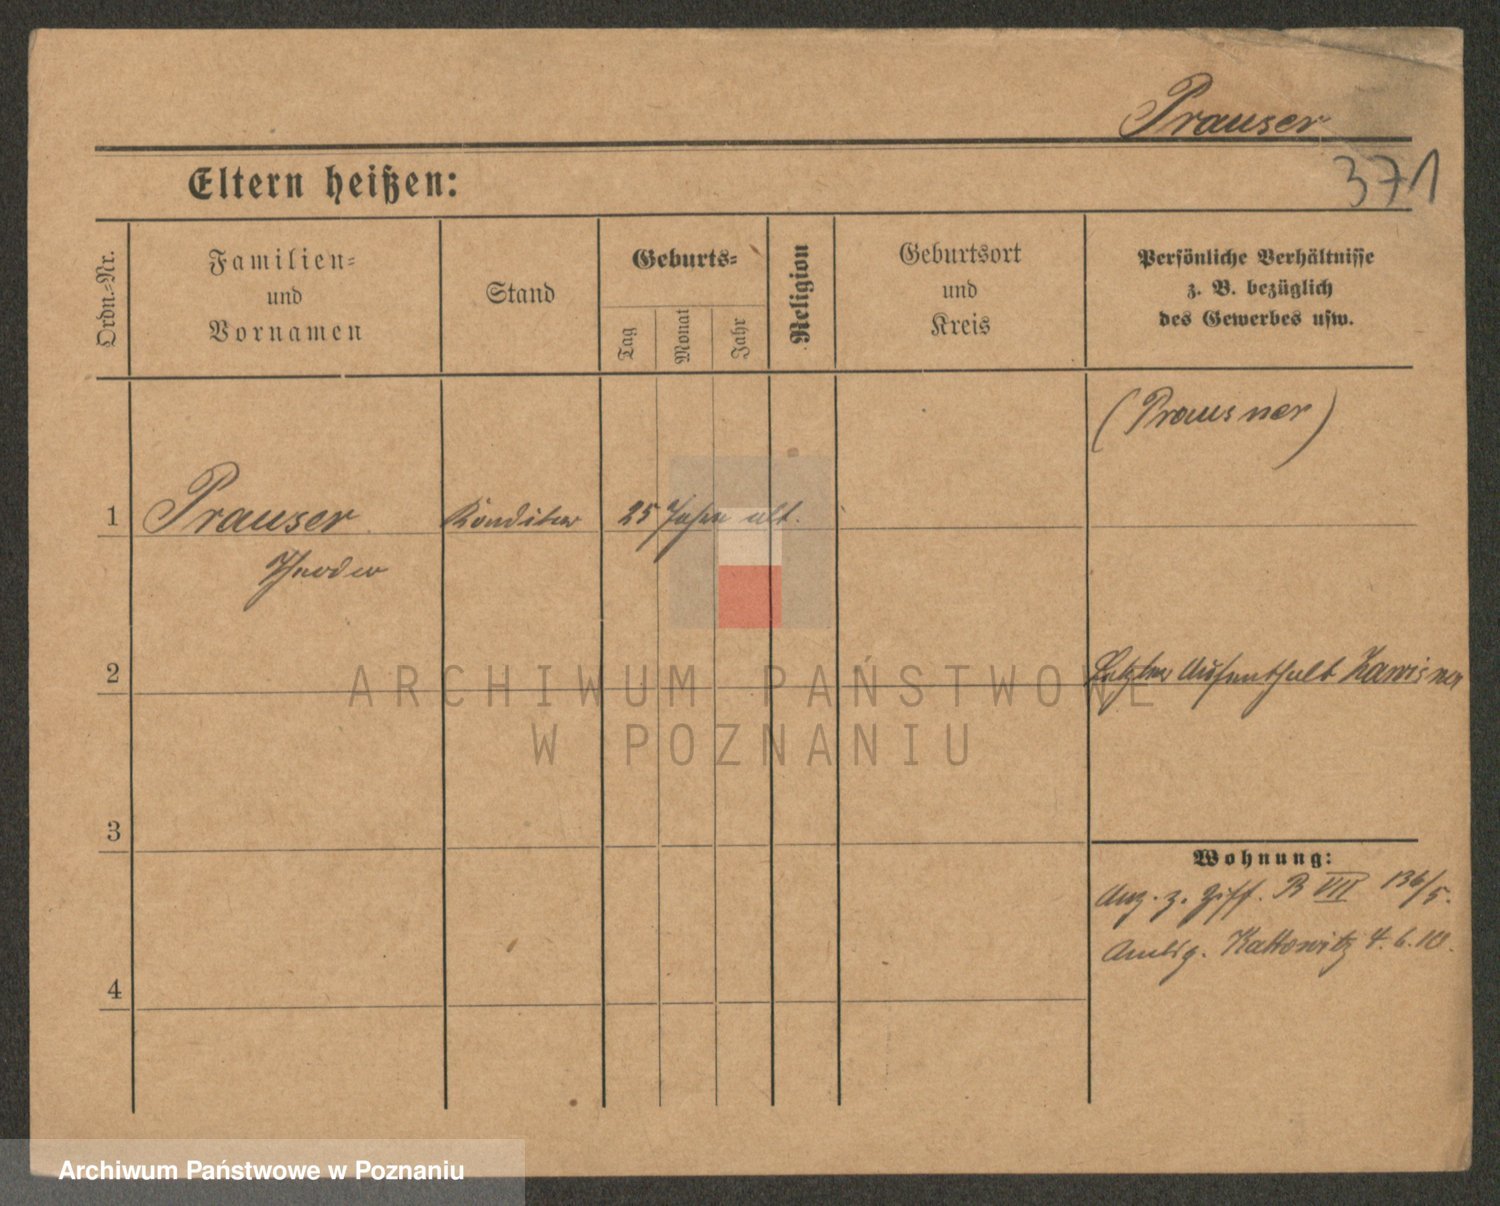 Prauser
371
Eltern heißen:
Ordn.-Nr.
Familien-
und
Vornamen
Stand
Geburts-
Tag
Monat
Jahr
Religion
Geburtsort
und
Kreis
Persönliche Verhältnisse
z. B. bezüglich
des Gewerbes usw.
(Prausner)
1 Prauser Konditor 25 Jahre alt.
Theodor
2 Letzter Aufenthalt
3
Wohnung:
Anz. z. Ziff. B VII 136/5.
Kattowitz 4.6.10.
4
ARCHIWUM PAŃSTWOWE
W POZNANIU
Archiwum Państwowe w Poznaniu